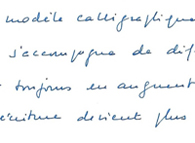 modèle calligraphique
s'accompagne de dif
toujours en augment
écriture devient plus